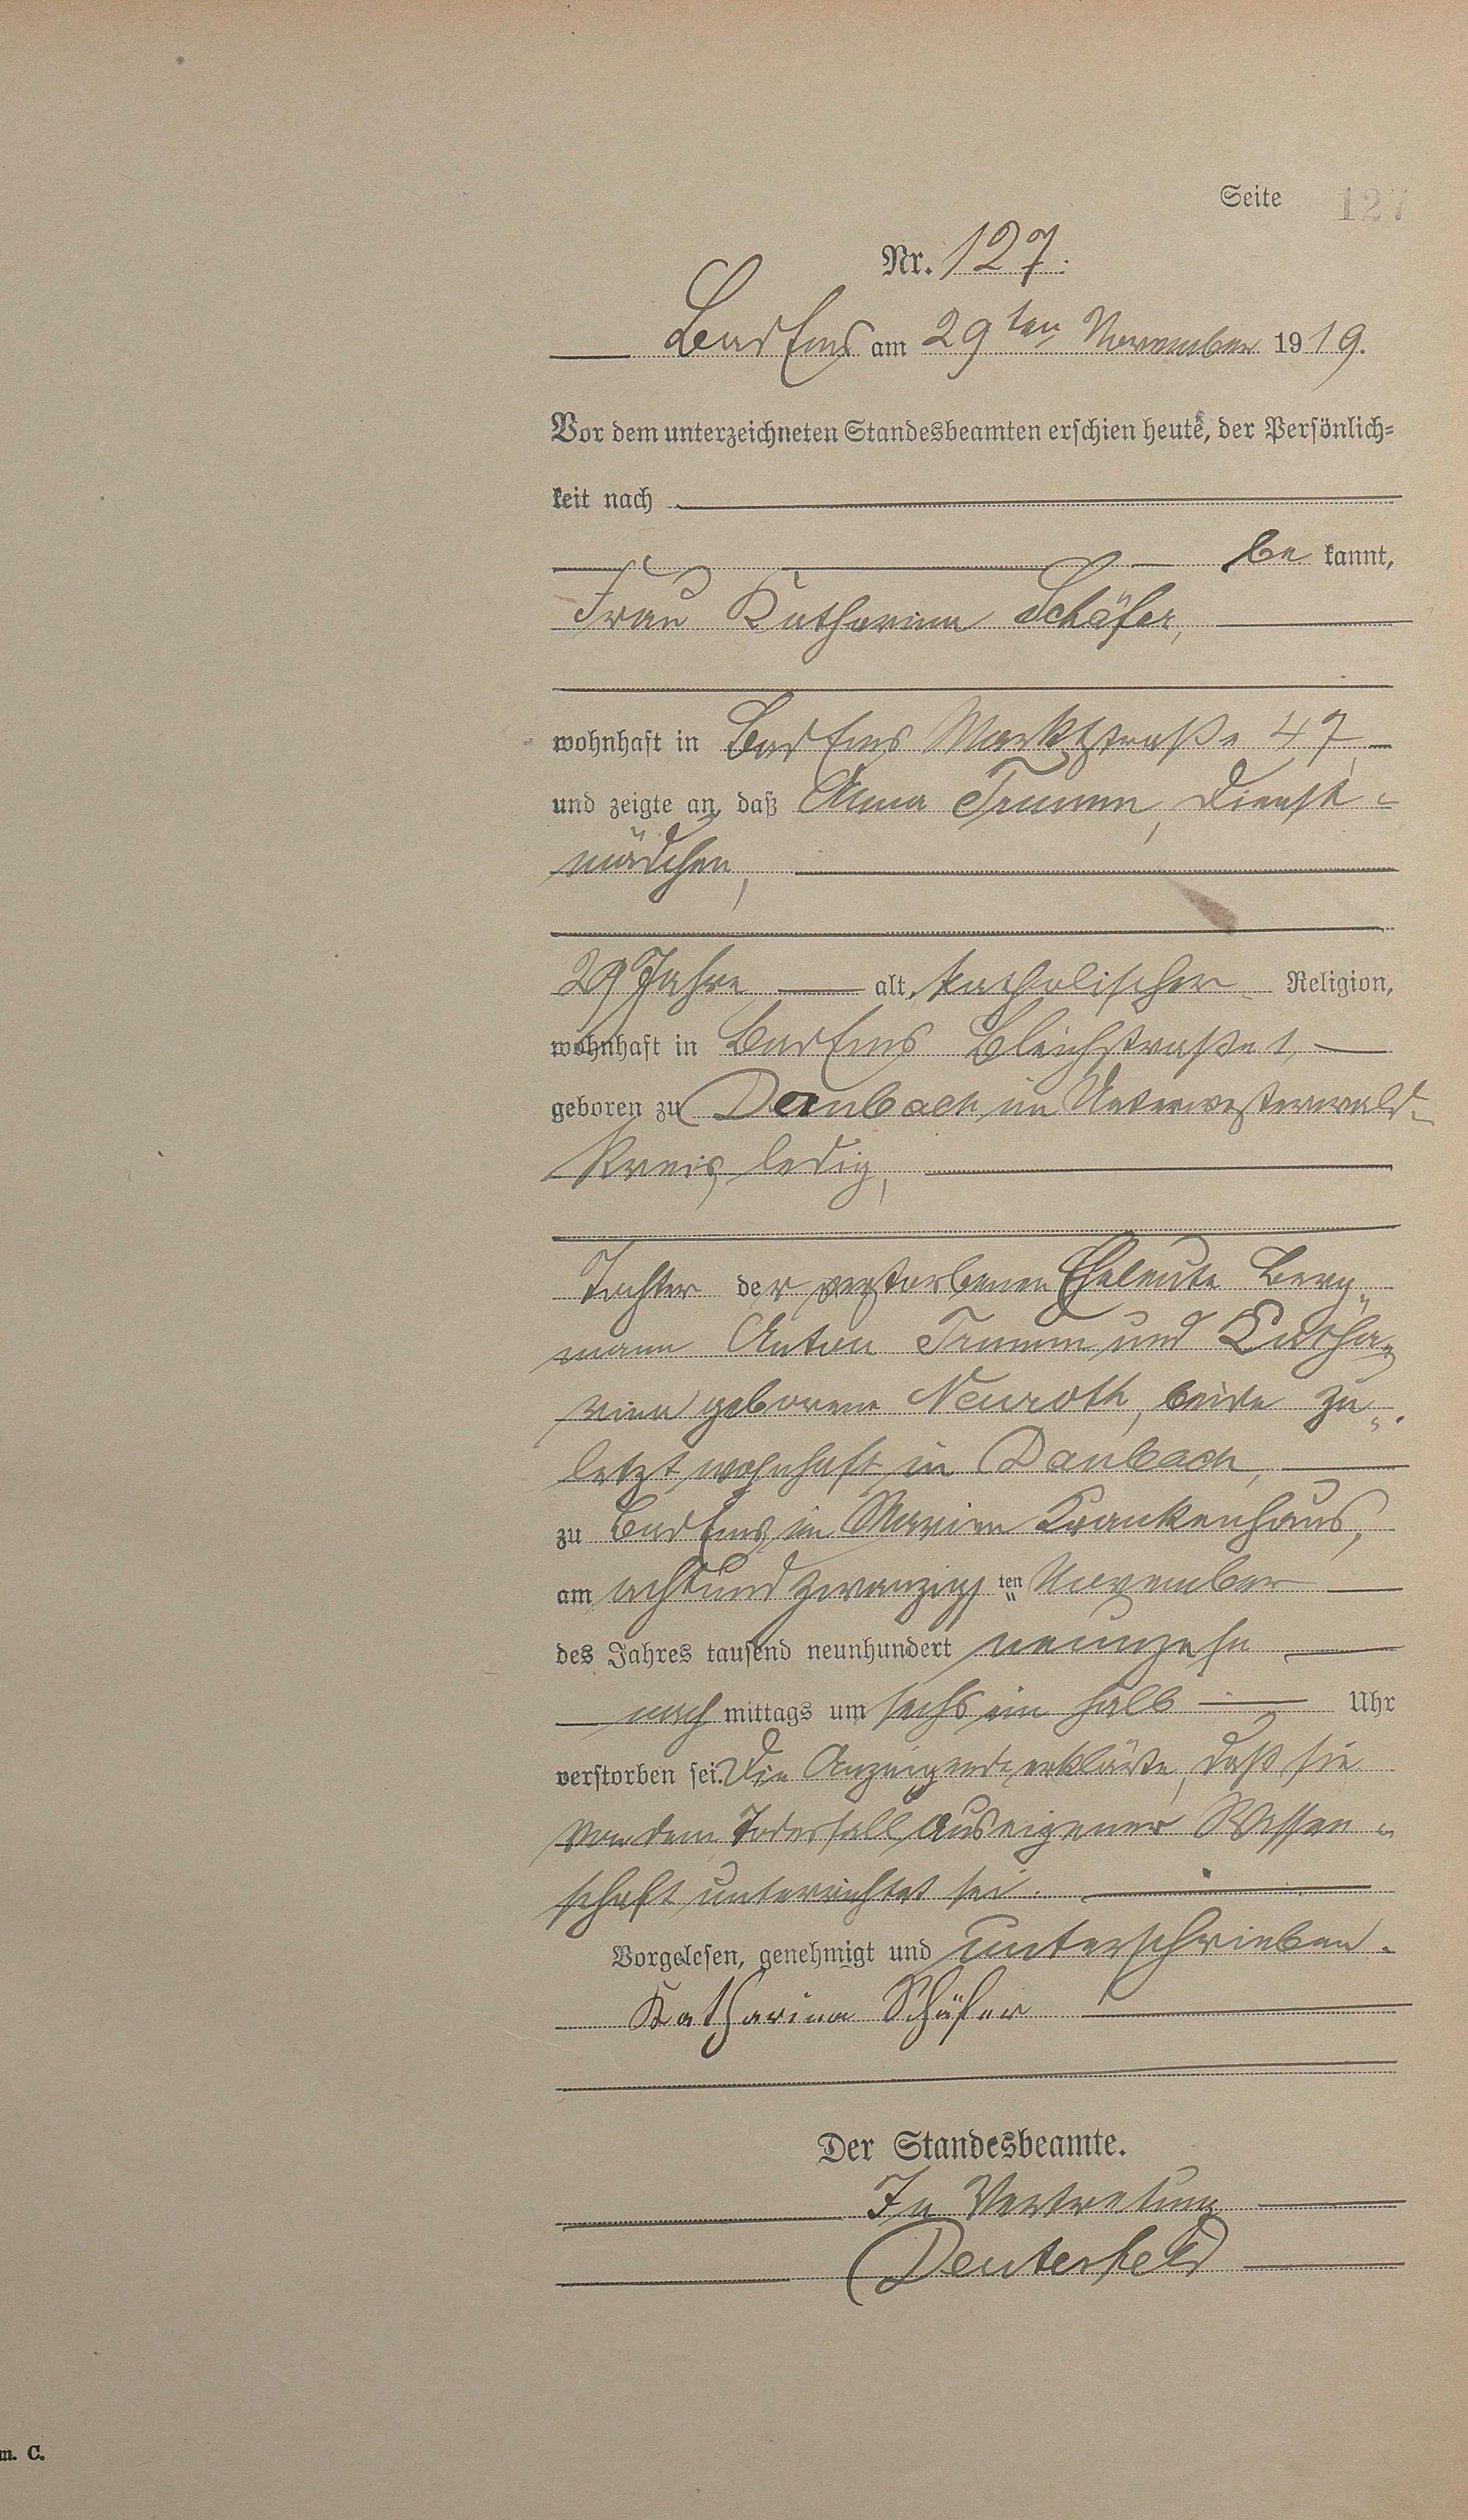 Seite 127
Nr. 127.
Bad Ems am 29ten November 1919.
Vor dem unterzeichneten Standesbeamten erschien heute, der Persönlich-
keit nach
be kannt,
Frau Katharina Schäfer,
wohnhaft in Bad Ems Marktstraße 47,
und zeigte an, daß Anna Trumm, Dienst-
mädchen,
29 Jahre alt, katholischer Religion,
wohnhaft in Bad Ems Bleichstraße 1,
geboren zu Daubach im Unterwesterwald-
kreis, ledig,
Tochter der verstorbenen Eheleute Berg-
mann Anton Trumm und Katha-
rina geborene Neuroth, beide zu-
letzt wohnhaft in Daubach,
zu Bad Ems, im Marien Krankenhaus,
am achtundzwanzigsten November
des Jahres tausend neunhundert neunzehn
nach mittags um sechs ein halb Uhr
verstorben sei. Die Anzeigende erklärte, daß sie
von dem Todesfall aus eigener Wissen-
schaft unterrichtet sei.
Vorgelesen, genehmigt und unterschrieben.
Katharina Schäfer
Der Standesbeamte.
In Vertretung
Deuterfeld
m. C.